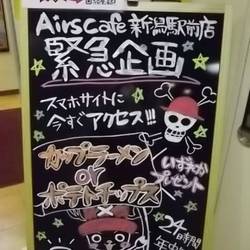 Airs Cafe 新潟駅前店
緊急企画
スマホサイトに
今すぐアクセス!!!
カップラーメン
or
ポテトチップス
いずれか
プレゼント
24時間